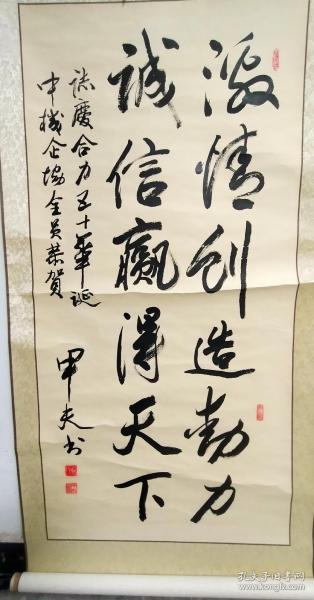 激情创造动力
诚信赢得天下
志庆合力五十华诞
中机企协全员恭贺
甲夫书
孔夫子旧书网
www.kongfz.com